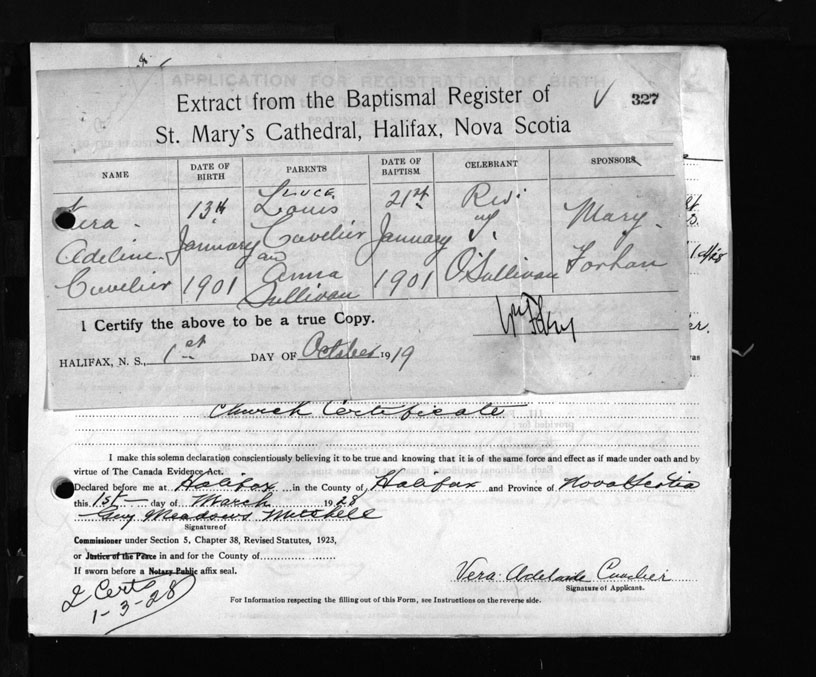 APPLICATION FOR REGISTRATION OF BIRTH
Extract from the Baptismal Register of
327
St. Mary's Cathedral, Halifax, Nova Scotia
NAME DATE OF BIRTH PARENTS DATE OF BAPTISM CELEBRANT SPONSORS
Luce
Vera 13th Louis 21st Rev. Mary
Adeline January Cuvelier January J.
and
Cuvelier 1901 Anna 1901 O'Sullivan Forhan
Sullivan
I Certify the above to be a true Copy.
HALIFAX, N. S., 1st DAY OF October 1919
Church Certificate
I make this solemn declaration conscientiously believing it to be true and knowing that it is of the same force and effect as if made under oath and by
virtue of The Canada Evidence Act.
Declared before me at Halifax in the County of Halifax and Province of Nova Scotia
this 1st day of March 1928
Guy Meadows Mitchell
Signature of
Commissioner under Section 5, Chapter 38, Revised Statutes, 1923,
or Justice of the Peace in and for the County of
If sworn before a Notary Public affix seal.
Vera Adelaide Cuvelier
Signature of Applicant.
2 Certs
1-3-28
For Information respecting the filling out of this Form, see Instructions on the reverse side.